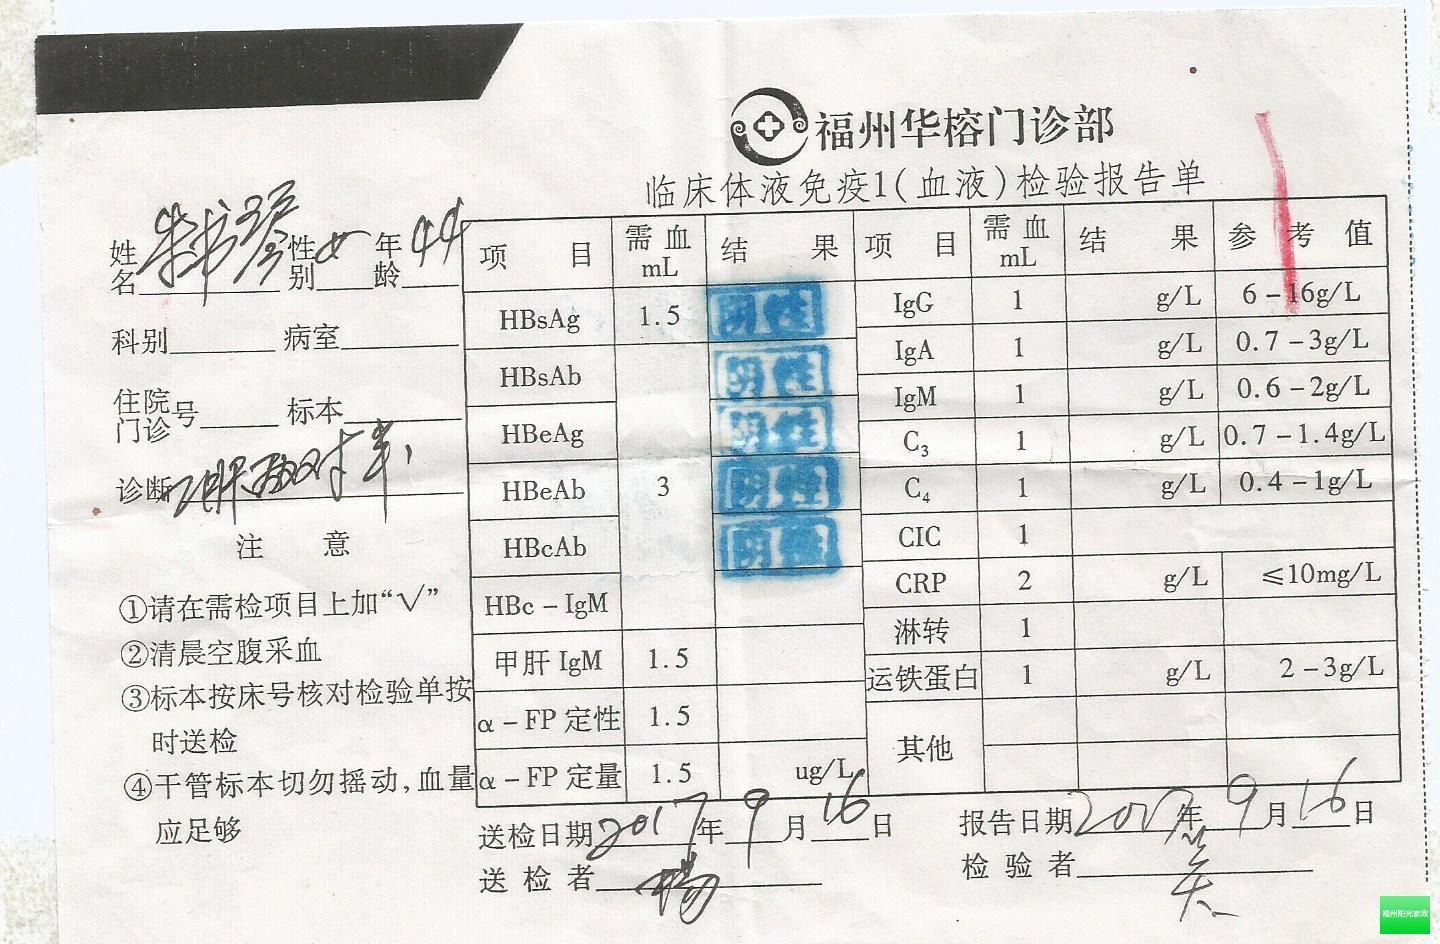 福州华榕门诊部
临床体液免疫1(血液)检验报告单
姓名 性别女 年龄44
科别 病室
住院门诊号 标本
诊断乙肝两对半
注 意
①请在需检项目上加“√”
②清晨空腹采血
③标本按床号核对检验单按
时送检
④干管标本切勿摇动,血量
应足够
项 目 需血mL 结 果 项 目 需血mL 结 果 参 考 值
HBsAg 1.5 阴性 IgG 1 g/L 6-16g/L
HBsAb 阴性 IgA 1 g/L 0.7-3g/L
HBeAg 阴性 IgM 1 g/L 0.6-2g/L
C3 1 g/L 0.7-1.4g/L
HBeAb 3 阴性 C4 1 g/L 0.4-1g/L
HBcAb 阴性 CIC 1
HBc-IgM CRP 2 g/L ≤10mg/L
淋转 1
甲肝IgM 1.5 运铁蛋白 1 g/L 2-3g/L
α-FP定性 1.5 其他
α-FP定量 1.5 ug/L
送检日期2017年9月16日 报告日期2017年9月16日
送检者杨 检验者
福州阳光家政